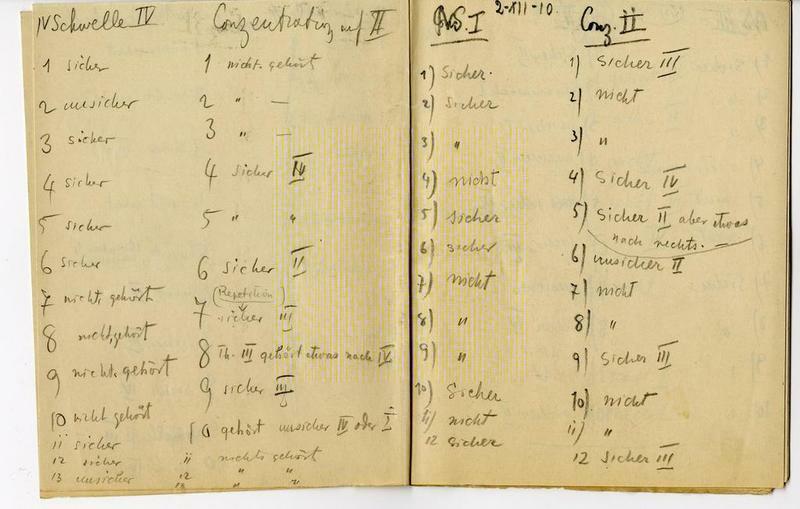 Schwelle IV
1 sicher
2 unsicher
3 sicher
4 sicher
5 sicher
6 sicher
7 nichts gehört
8 nicht gehört
9 nichts gehört
10 nicht gehört
11 sicher
12 sicher
13 unsicher
Conzentration auf II
1 nicht gehört
2 " —
3 " —
4 sicher IV
5 " "
6 sicher II
(Repetition)
7 sicher III
8 Th. III gehört etwas nach IV
9 sicher III
10 gehört unsicher IV oder I
11 nichts gehört
12 " "
13 " "
2-XII-10.
I
1) Sicher.
2) Sicher
3) "
4) nicht
5) Sicher
6) sicher
7) nicht
8) "
9) "
10) Sicher
11) nicht
12 sicher
Conz. II
1) Sicher III
2) nicht
3) "
4) Sicher IV
5) Sicher II aber etwas
nach rechts. —
6) unsicher II
7) nicht
8) "
9) Sicher III
10) nicht
11) "
12 Sicher III